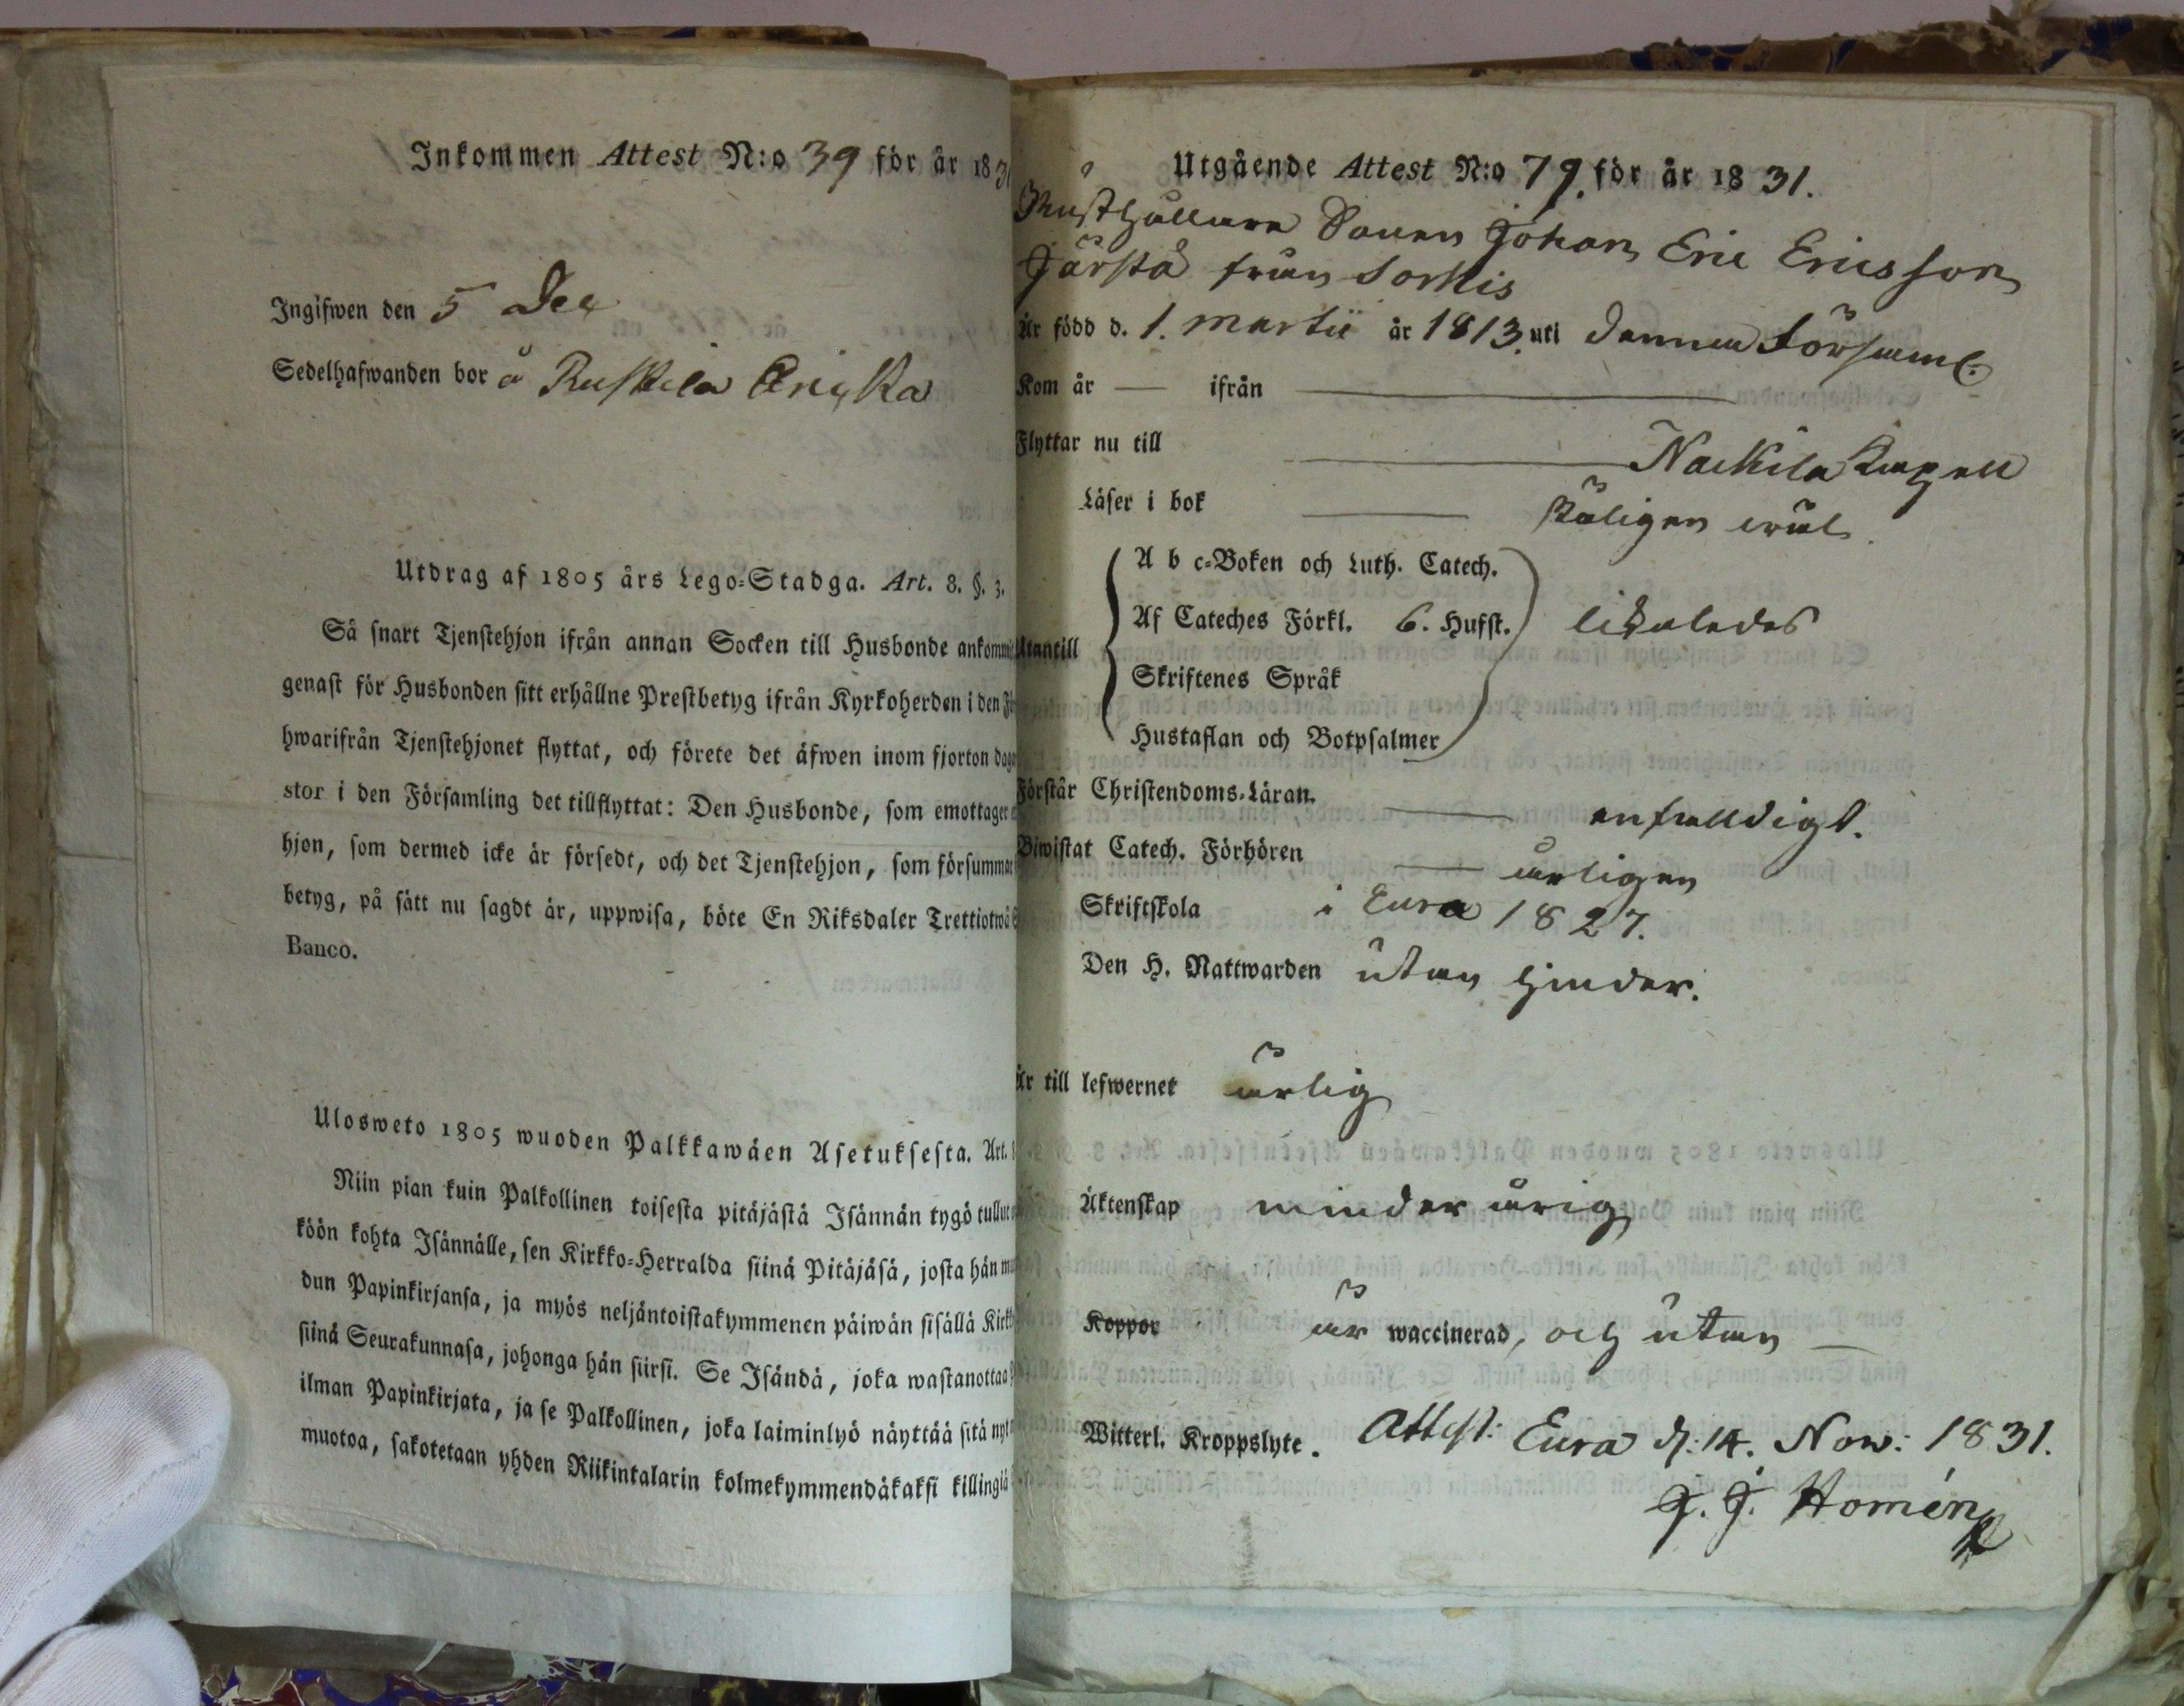 Inkommen Attest N:o 39 för år 1831
Ingifwen den 5 Dec
Sedelhafwanden bor å Ruskila
Utdrag af 1805 års Lego-Stadga. Art. 8. §. 3.
Så snart Tjenstehjon ifrån annan Socken till Husbonde ankommi
genast för Husbonden sitt erhållne Prestbetyg ifrån Kyrkoherden i den
hwarifrån Tjenstehjonet flyttat, och förete det äfwen inom fjorton dag
stor i den Församling det tillflyttat: Den Husbonde, som emottager
hjon, som dermed icke är försedt, och det Tjenstehjon, som försummar
betyg, på sätt nu sagdt är, uppwisa, böte En Riksdaler Trettiotwå
Banco.
Ulosweto 1805 wuoden Palkkawäen Asetuksesta. Art.
Niin pian kuin Palkollinen toisesta pitäjästä Isännän tygö tullut
köön kohta Isännälle, sen Kirkko-Herralda siinä Pitäjäsä, josta hän mu
dun Papinkirjansa, ja myös neljäntoistakymmenen päiwän sisällä Kirk
siinä Seurakunnasa, johonga hän siirsi. Se Isändä, joka wastanottaa
ilman Papinkirjata, ja se Palkollinen, joka laiminlyö näyttää sitä nyt
muotoa, sakotetaan yhden Riikintalarin kolmekymmendäkaksi killingiä
Utgående Attest N:o 79. för år 1831.
Rusthållare Sonen Johan Eric Ericsson
Järstå från Sorkis
Är född d. 1. martii år 1813. uti denna Församl.
Kom år — ifrån —
Flyttar nu till — Nackila Capell
Läser i bok — skäligen wäl.
Utantill
A b c-Boken och Luth. Catech.
Af Cateches Förkl. 6. Hufst. likaledes
Skriftenes Språk
Hustaflan och Botpsalmer
Förstår Christendoms-Läran. — enfaldigt.
Biwistat Catech. Förhören — årligen
Skriftskola i Eura 1827.
Den H. Nattwarden utan hinder.
Är till lefwernet ärlig
Äktenskap minderårig
Koppor är waccinerad, och utan —
Witterl. Kroppslyte. Attest: Eura d: 14. Now: 1831.
J. J. Homén